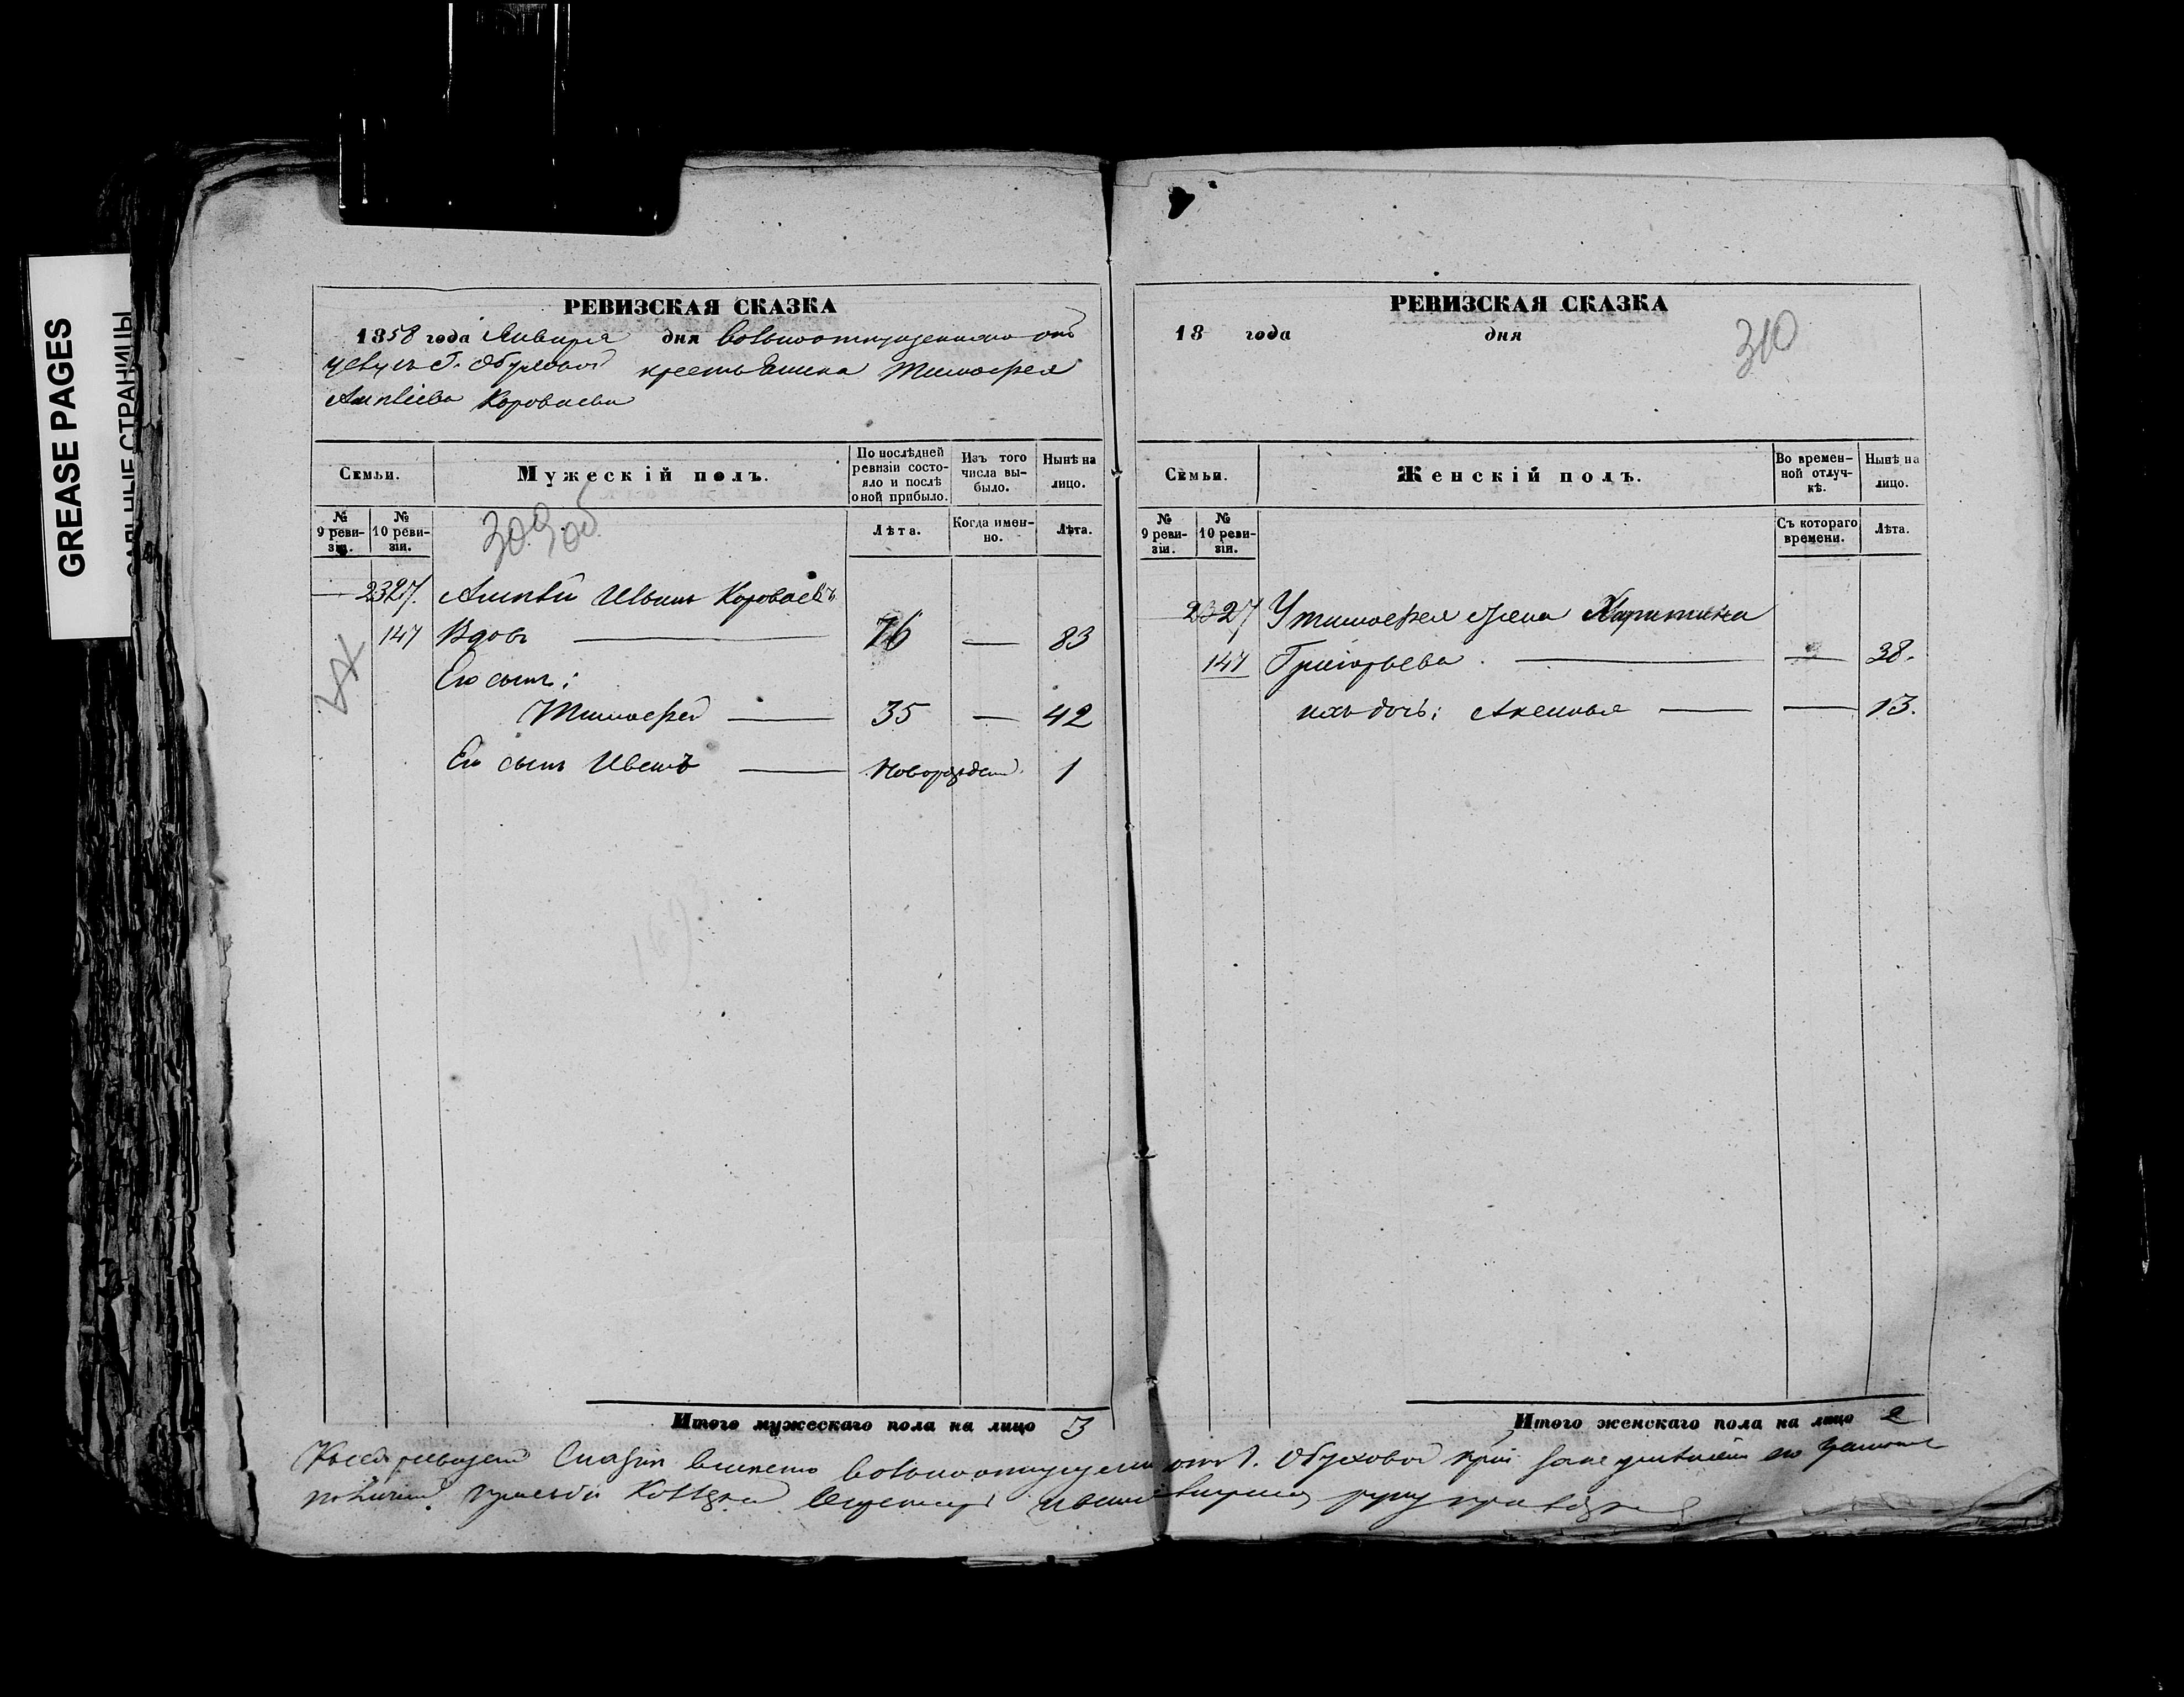 GREASE PAGES
САЛЬНЫЕ СТРАНИЦЫ
РЕВИЗСКАЯ СКАЗКА
1858 года Января дня вольноотпущеннаго отъ
Г. Обуховой крестьянина Тимофея
Короваева
Семьи.
Мужескій полъ.
По послѣдней ревизіи состояло и послѣ оной прибыло.
Изъ того числа выбыло.
Нынѣ на лицо.
№ 9 ревизіи.
№ 10 ревизіи.
309 об
Лѣта.
Когда именно.
Лѣта.
— 2327. Иванъ Короваевъ
147 Вдовъ — 76 — 83
Его сынъ:
Тимофей — 35 — 42
Его сынъ Иванъ — новорожден. 1
1693
Итого мужескаго пола на лицо 3
РЕВИЗСКАЯ СКАЗКА
18 года дня
310
Семьи.
Женскій полъ.
Во временной отлучкѣ.
Нынѣ на лицо.
№ 9 ревизіи.
№ 10 ревизіи.
Съ котораго времени.
Лѣта.
2327 У Тимофея жена Харитина
147 Григорьева — — 38.
ихъ дочь: Аксинья — — 13.
Итого женскаго пола на лицо 2
Къ сей ревизской Сказки вместо вольноотпущен отъ Г. Обуховой
руку